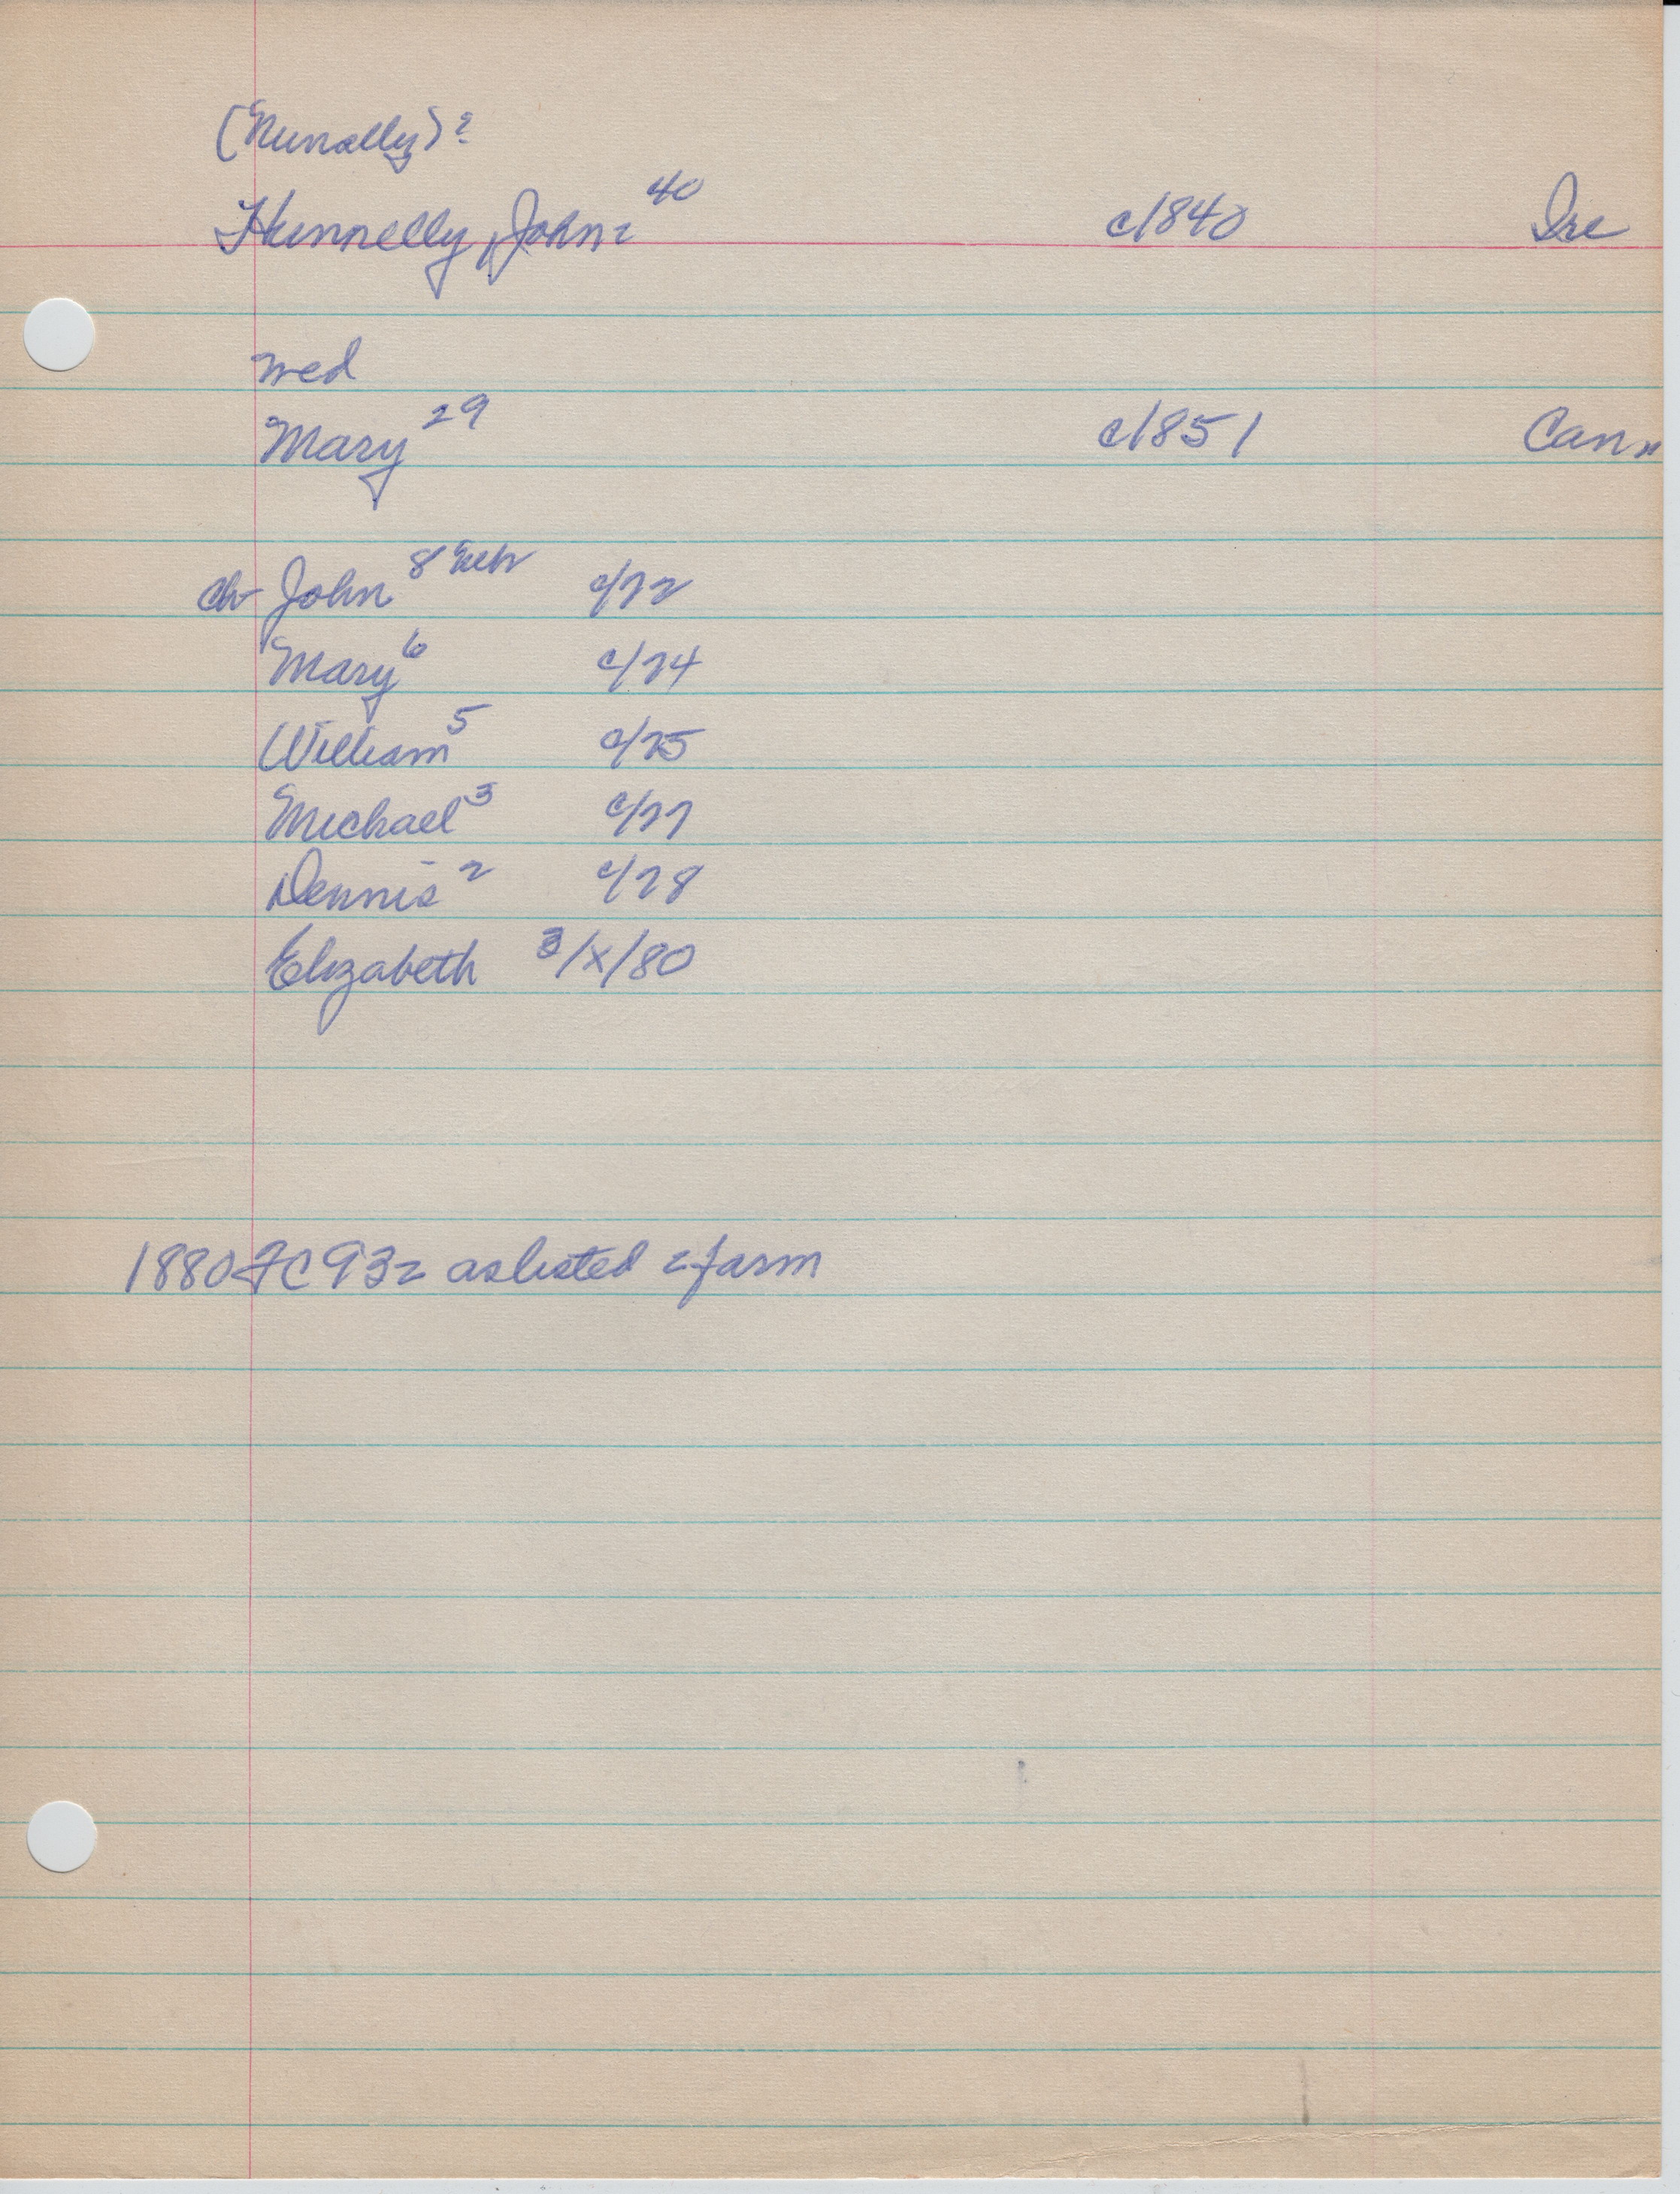 (Nunally)?
Hunnelly, John = 40 c1840 Ire
med
Mary 29 c1851 Can
ch John 8 c/72
Mary 6 c/74
William 5 c/75
Michael 3 c/77
Dennis 2 c/78
Elizabeth 3/x/80
1880 FC 93 = as listed = farm